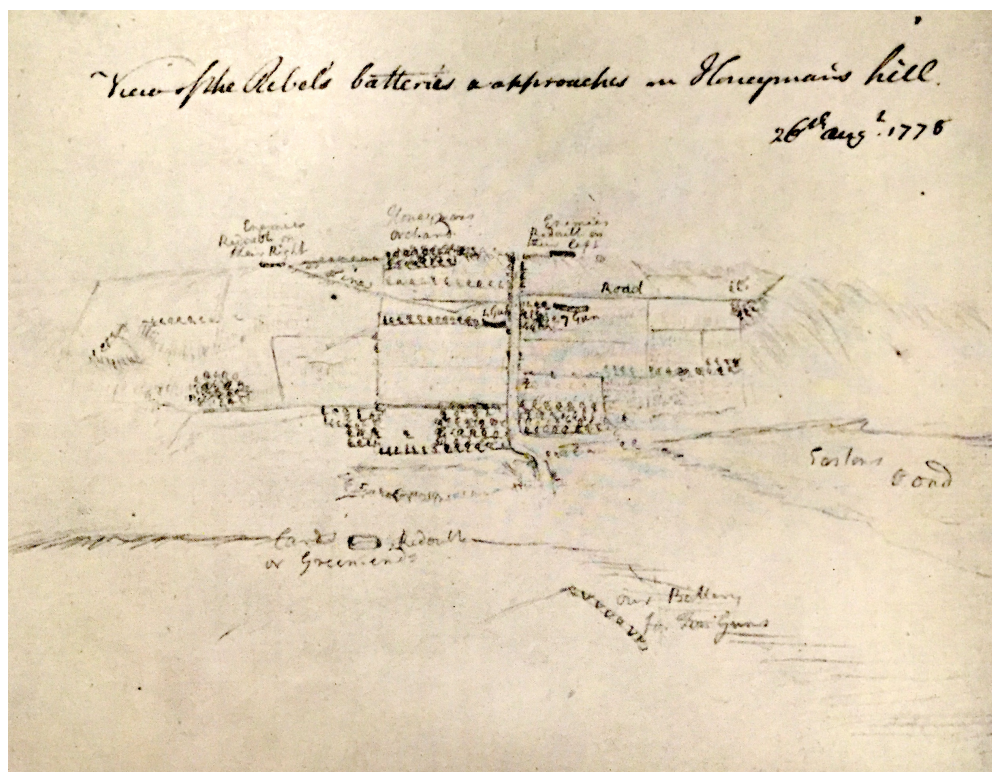 View of the Rebels batteries & approaches on Honeymans hill.
26th augt. 1778
Enemies
Redoubt on
their Right
Honeymans
orchard
Enemies
Redoubt on
their left
Line
Road
7 Gun
Eastons
Pond
Cards Redoubt
or Greenend
our Battery
for Guns